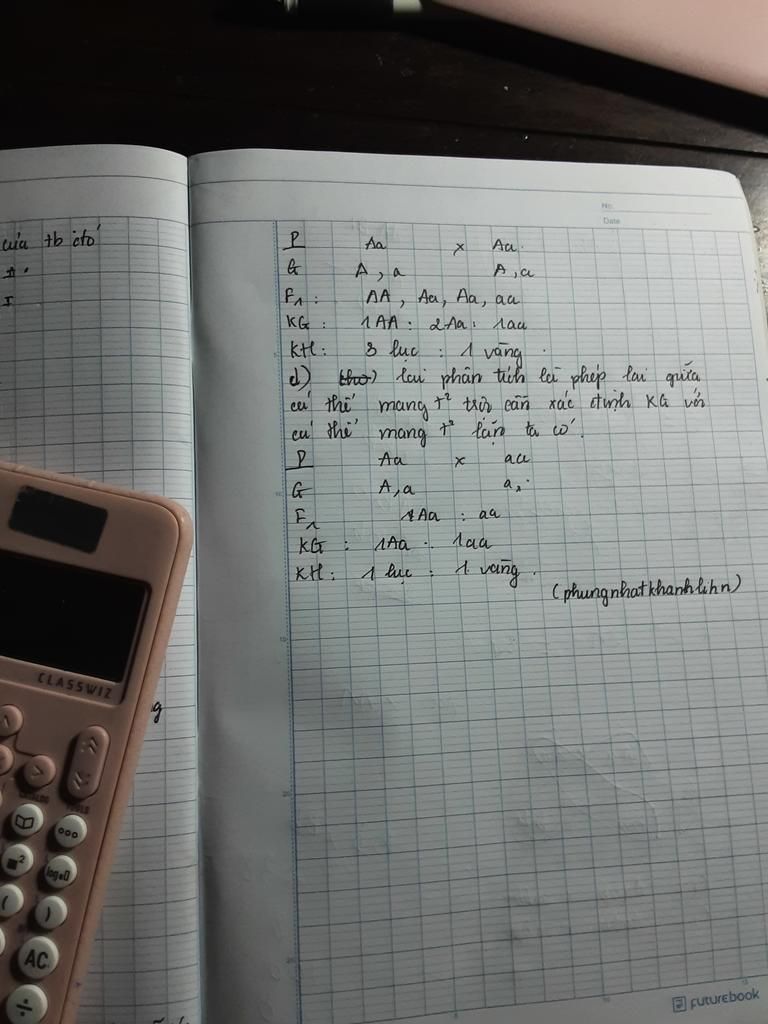 của tb cto
No.
Date
P Aa x Aa.
G A, a A, a
F1: AA, Aa, Aa, aa
KG: 1AA: 2Aa: 1aa
KH: 3 lục : 1 vàng.
d) lai phân tích là phép lai giữa
cá thể mang t² trội cần xác định KG với
cá thể mang t² lặn ta có.
P Aa x aa
G A, a a,.
F1 1Aa : aa
KG: 1Aa : 1aa
KH: 1 lục : 1 vàng.
(phungnhatkhanhlinh)
g
CLASSWIZ
CATALOG
TOOLS
■²
log■□
(
)
AC
÷
futurebook